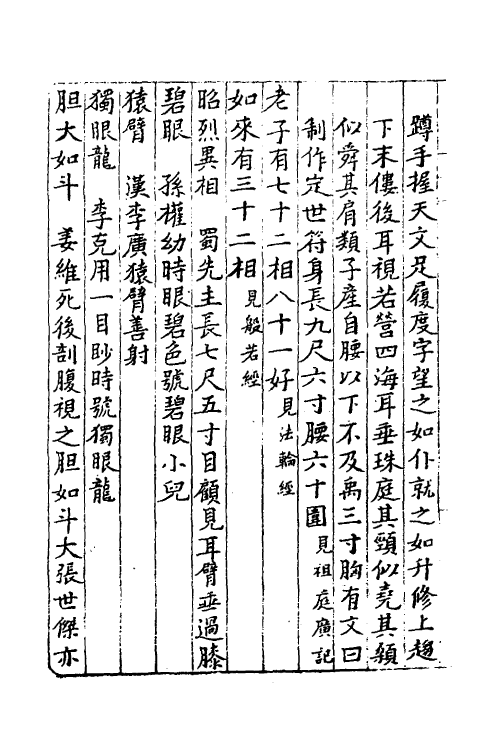 蹲手握天文足履度字望之如仆就之如升修上趨
下末僂後耳視若營四海耳垂珠庭其頸似堯其顙
似舜其肩類子產自腰以下不及禹三寸胸有文曰
制作定世符身長九尺六寸腰六十圍見祖庭廣記
老子有七十二相八十一好見法輪經
如來有三十二相見般若經
昭烈異相 蜀先主長七尺五寸目顧見耳臂垂過膝
碧眼 孫權幼時眼碧色號碧眼小兒
猿臂 漢李廣猿臂善射
獨眼龍 李克用一目眇時號獨眼龍
胆大如斗 姜維死後剖腹視之胆如斗大張世傑亦